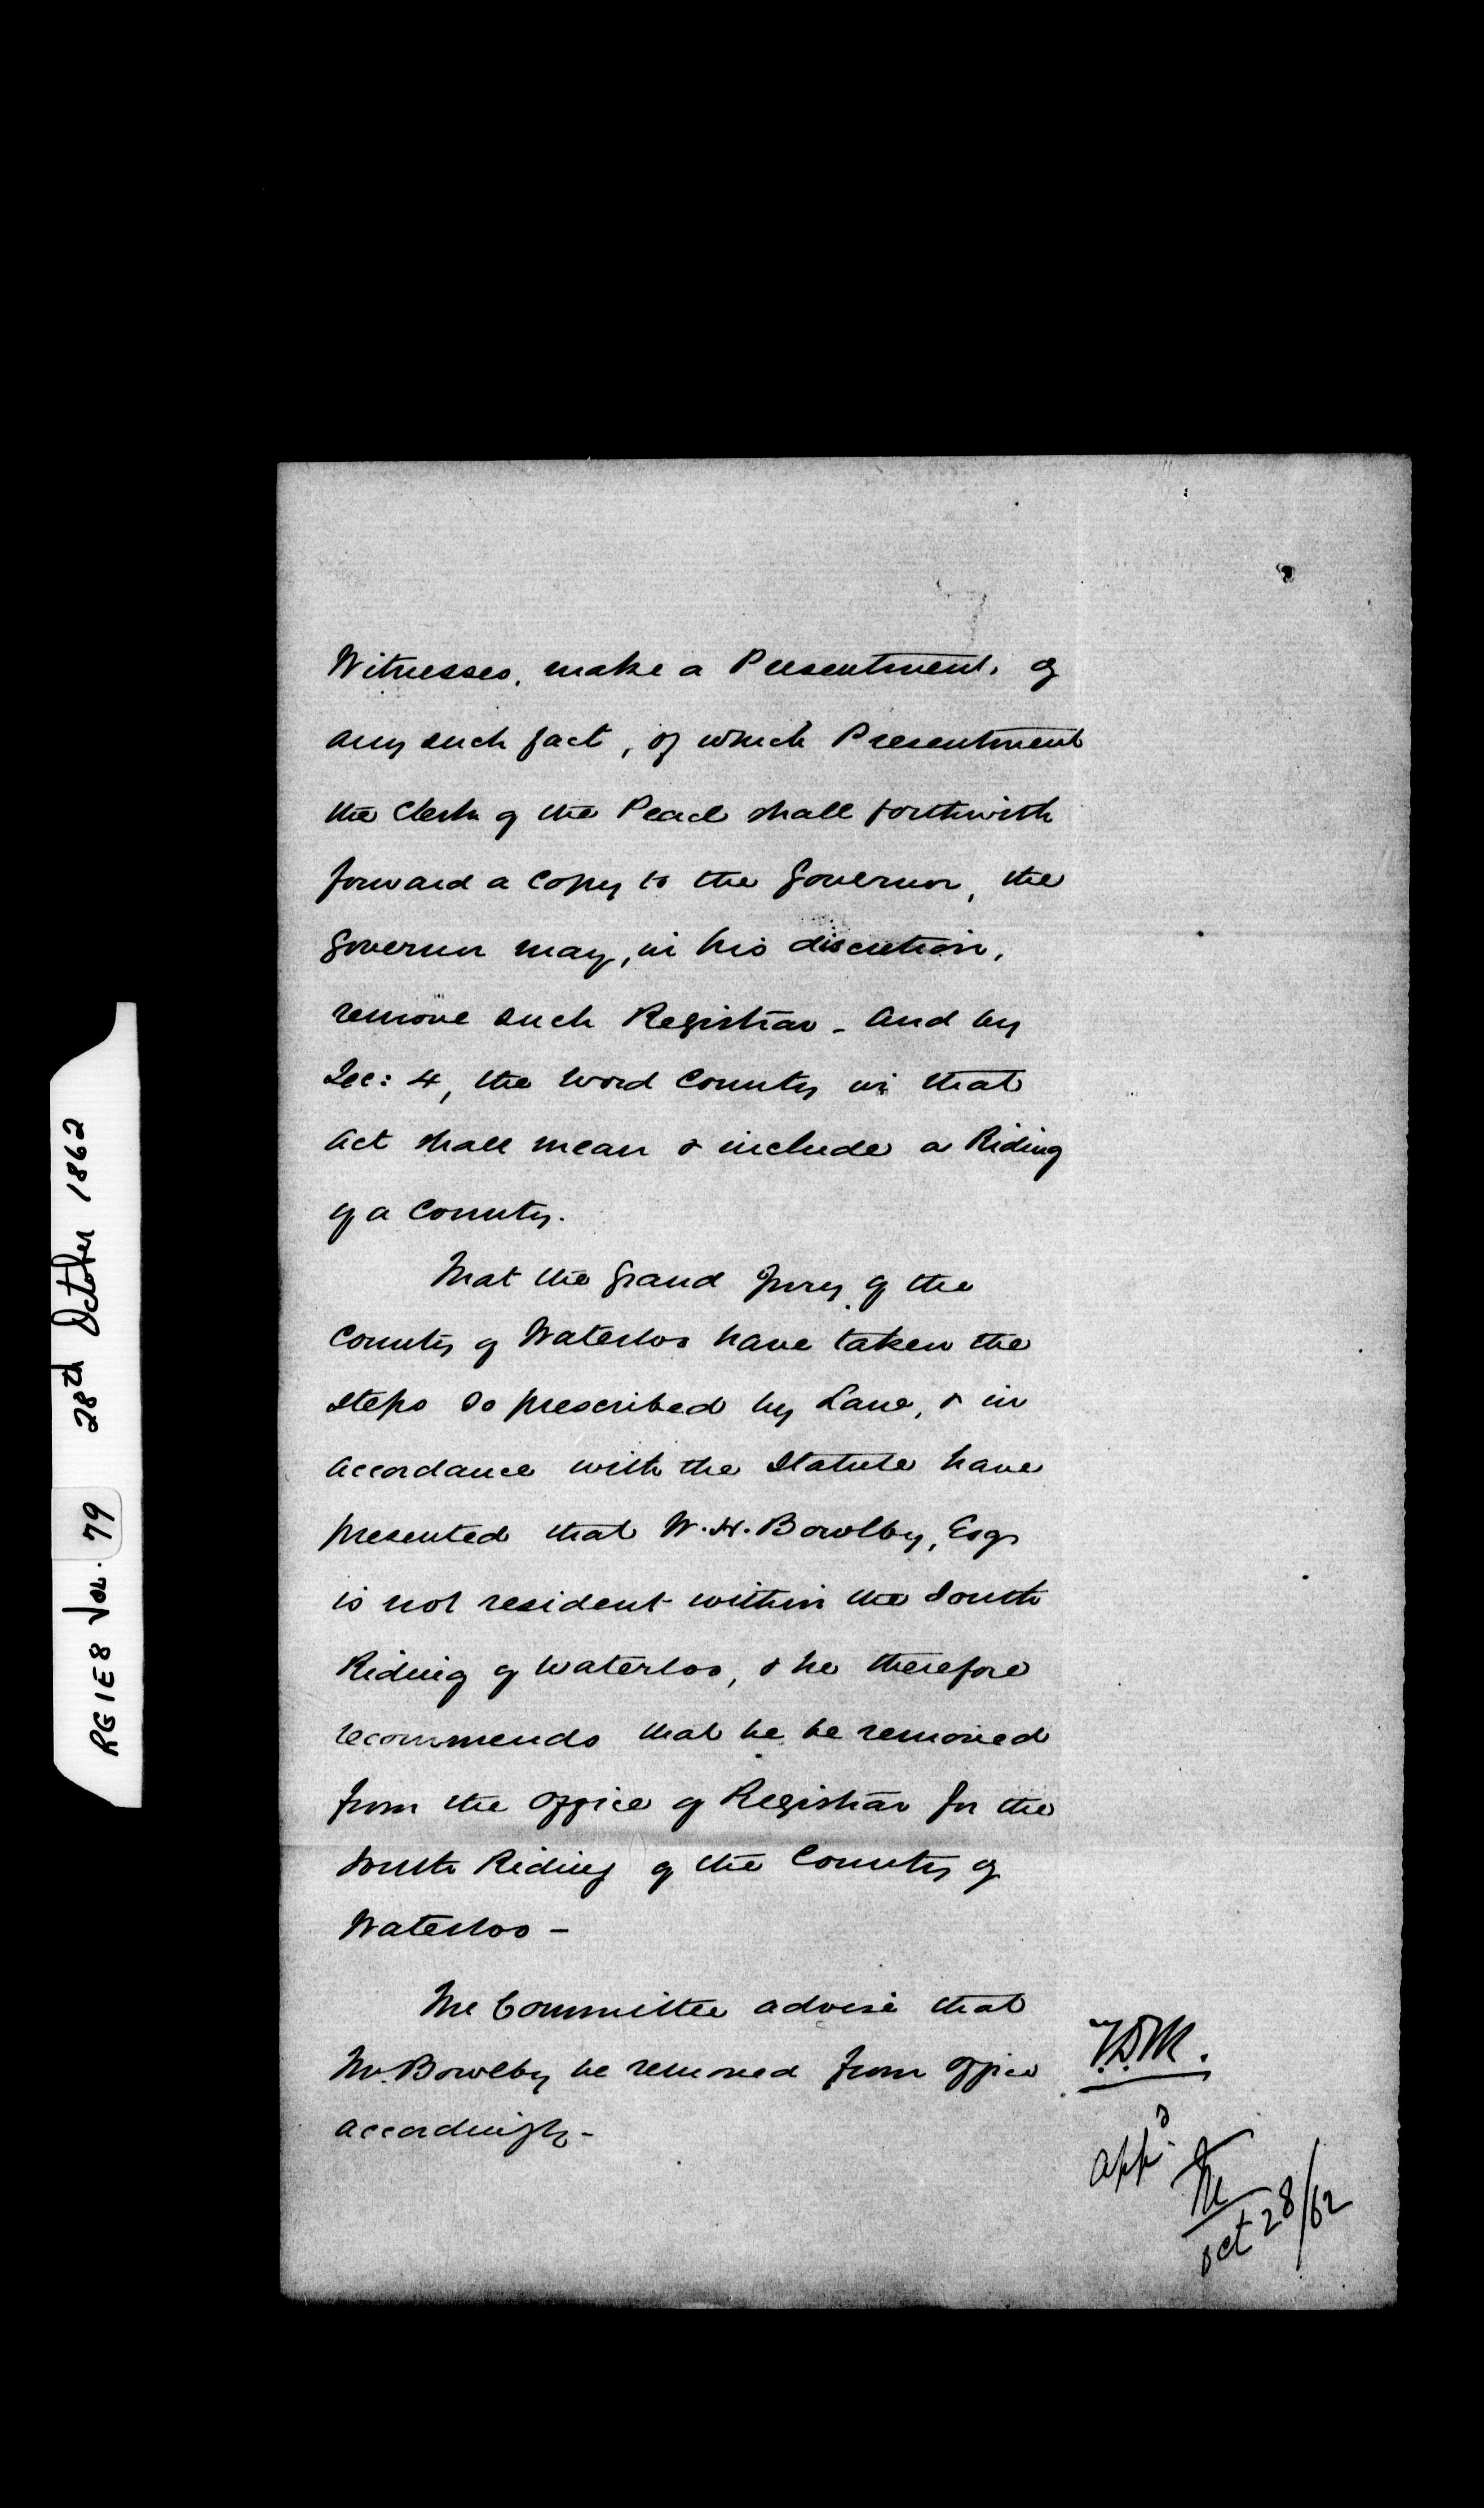 Witnesses, make a Presentment, of
any such fact, of which Presentment
the Clerk of the Peace shall forthwith
forward a Copy to the Governor, the
Governor may, in his discretion,
remove such Registrar - And by
Sec: 4, the word County in that
Act shall mean & include a Riding
of a County.
That the Grand Jury of the
County of Waterloo have taken the
steps so prescribed by Law, & in
accordance with the Statute have
presented that W. H. Bowlby, Esqr
is not resident within the South
Riding of Waterloo, & he therefore
recommends that he be removed
from the office of Registrar for the
South Riding of the County of
Waterloo -
The Committee advise that
Mr. Bowlby be removed from office
accordingly -
T.D.M.
appd
M
Oct 28/62
RG1E8 Vol. 79 28th October 1862